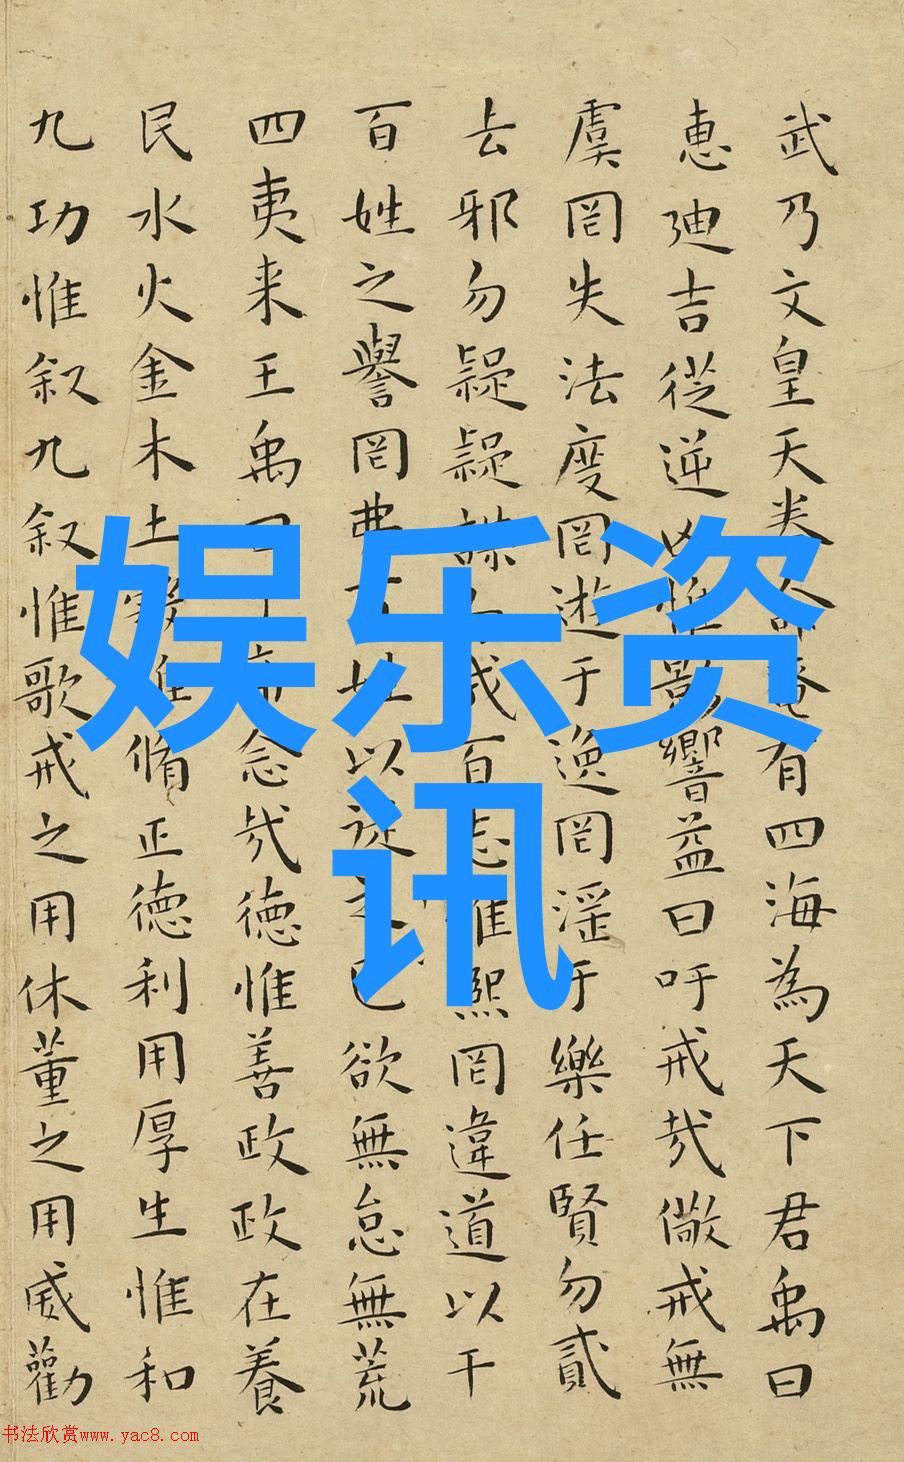 武乃文皇天眷命奄有四海為天下君禹曰
惠迪吉從逆凶惟影響益曰吁戒哉儆戒無
虞罔失法度罔遊于逸罔淫于樂任賢勿貳
去邪勿疑疑謀成百志惟熙罔違道以干
百姓之譽罔姓以從己欲無怠無荒
四夷来王禹念哉德惟善政政在養
民水火金木土惟脩正德利用厚生惟和
九功惟叙九叙惟歌戒之用休董之用威勸
娱乐资
讯
书法欣赏www.yac8.com